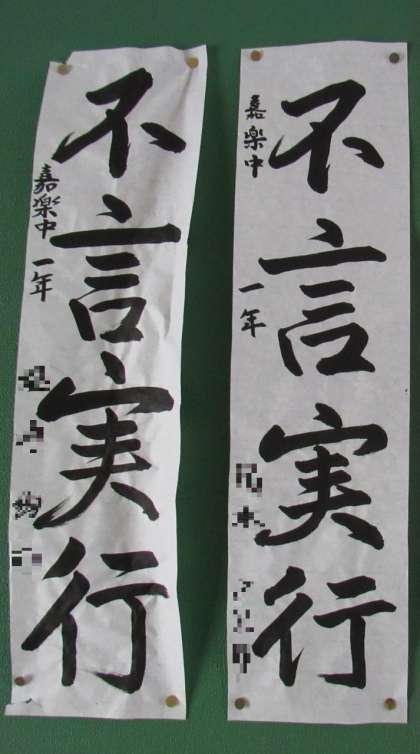 不言実行
嘉楽中 一年
不言実行
嘉楽中 一年